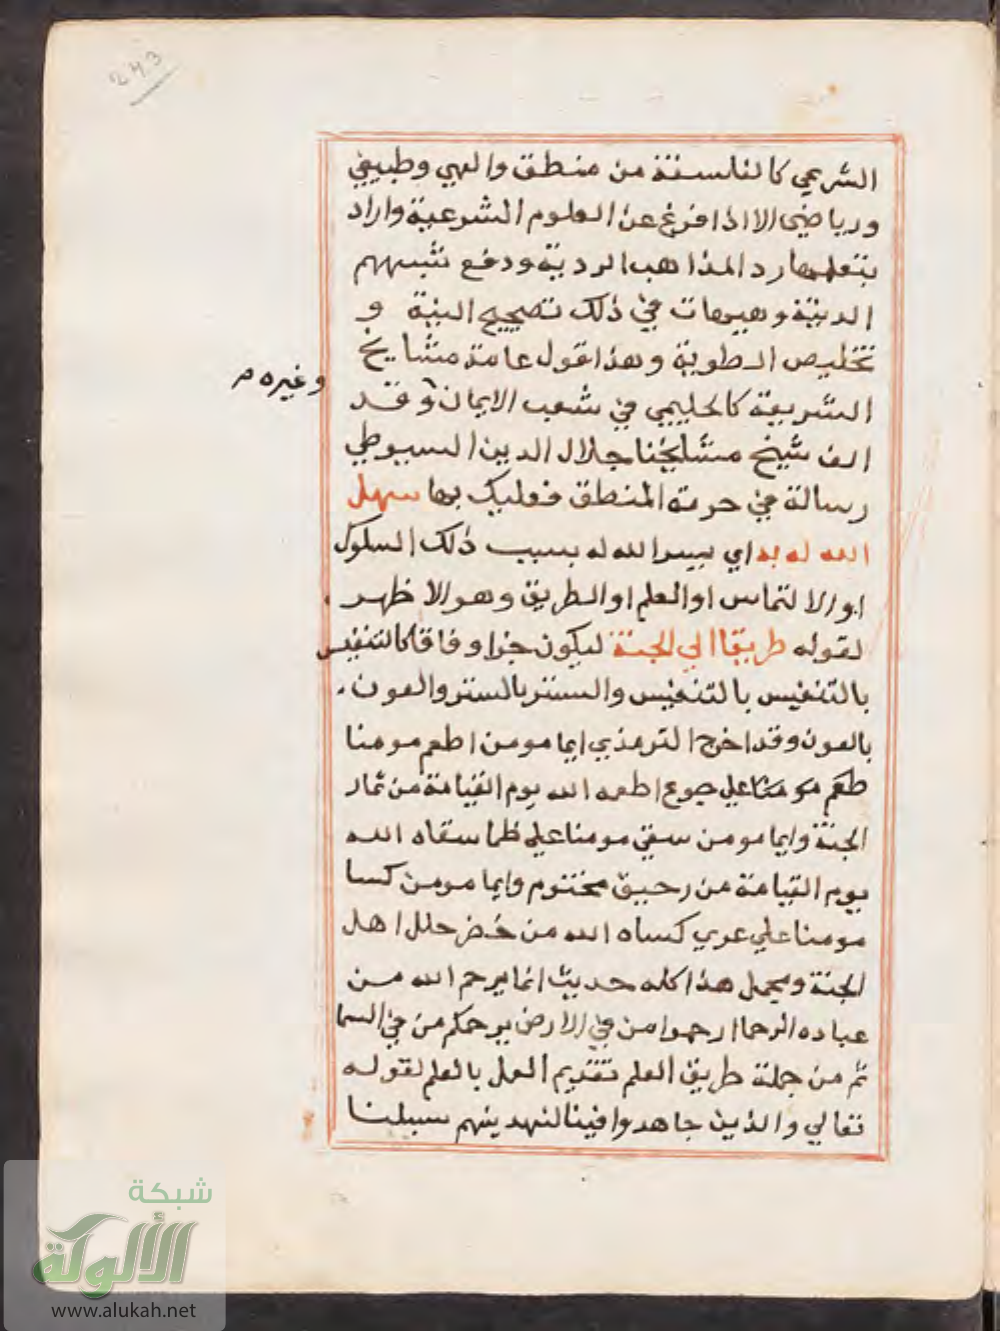 243
الشرعي كالفلسفة من منطق والهي وطبيعي
ورياضي الا اذا فرغ عن العلوم الشرعية واراد
بتعلمها رد المذاهب الردية ودفع شبههم
الدنية وهيهات في ذلك تصحيح النية و
تخليص الطوية وهذا قول عامة مشايخ
الشريعة كالحليمي في شعب الايمان وقد
وغيره م
الف شيخ مشايخنا جلال الدين السيوطي
رسالة في حرمة المنطق فعليك بها سهل
الله له به اي ييسر الله له بسبب ذلك السلوك
او الالتماس او العلم او الطريق وهو الاظهر
لقوله طريقا الي الجنة ليكون جزا وفاقا كالتنفيس
بالتنفيس بالتنفيس والستر بالستر والعون
بالعون وقد اخرج الترمذي ايما مومن اطعم مومنا
طعم مومنا علي جوع اطعمه الله يوم القيامة من ثمار
الجنة وايما مومن سقي مومنا علي ظما سقاه الله
يوم القيامة من رحيق مختوم وايما مومن كسا
مومنا علي عري كساه الله من خضر حلل اهل
الجنة ومجمل هذا كله حديث انما يرحم الله من
عباده الرحما ارحموا من في الارض يرحمكم من في السما
ثم من جملة طريق العلم تقديم العمل بالعلم لقوله
تعالي والذين جاهدوا فينا لنهدينهم سبلنا
شبكة
الألوكة
www.alukah.net